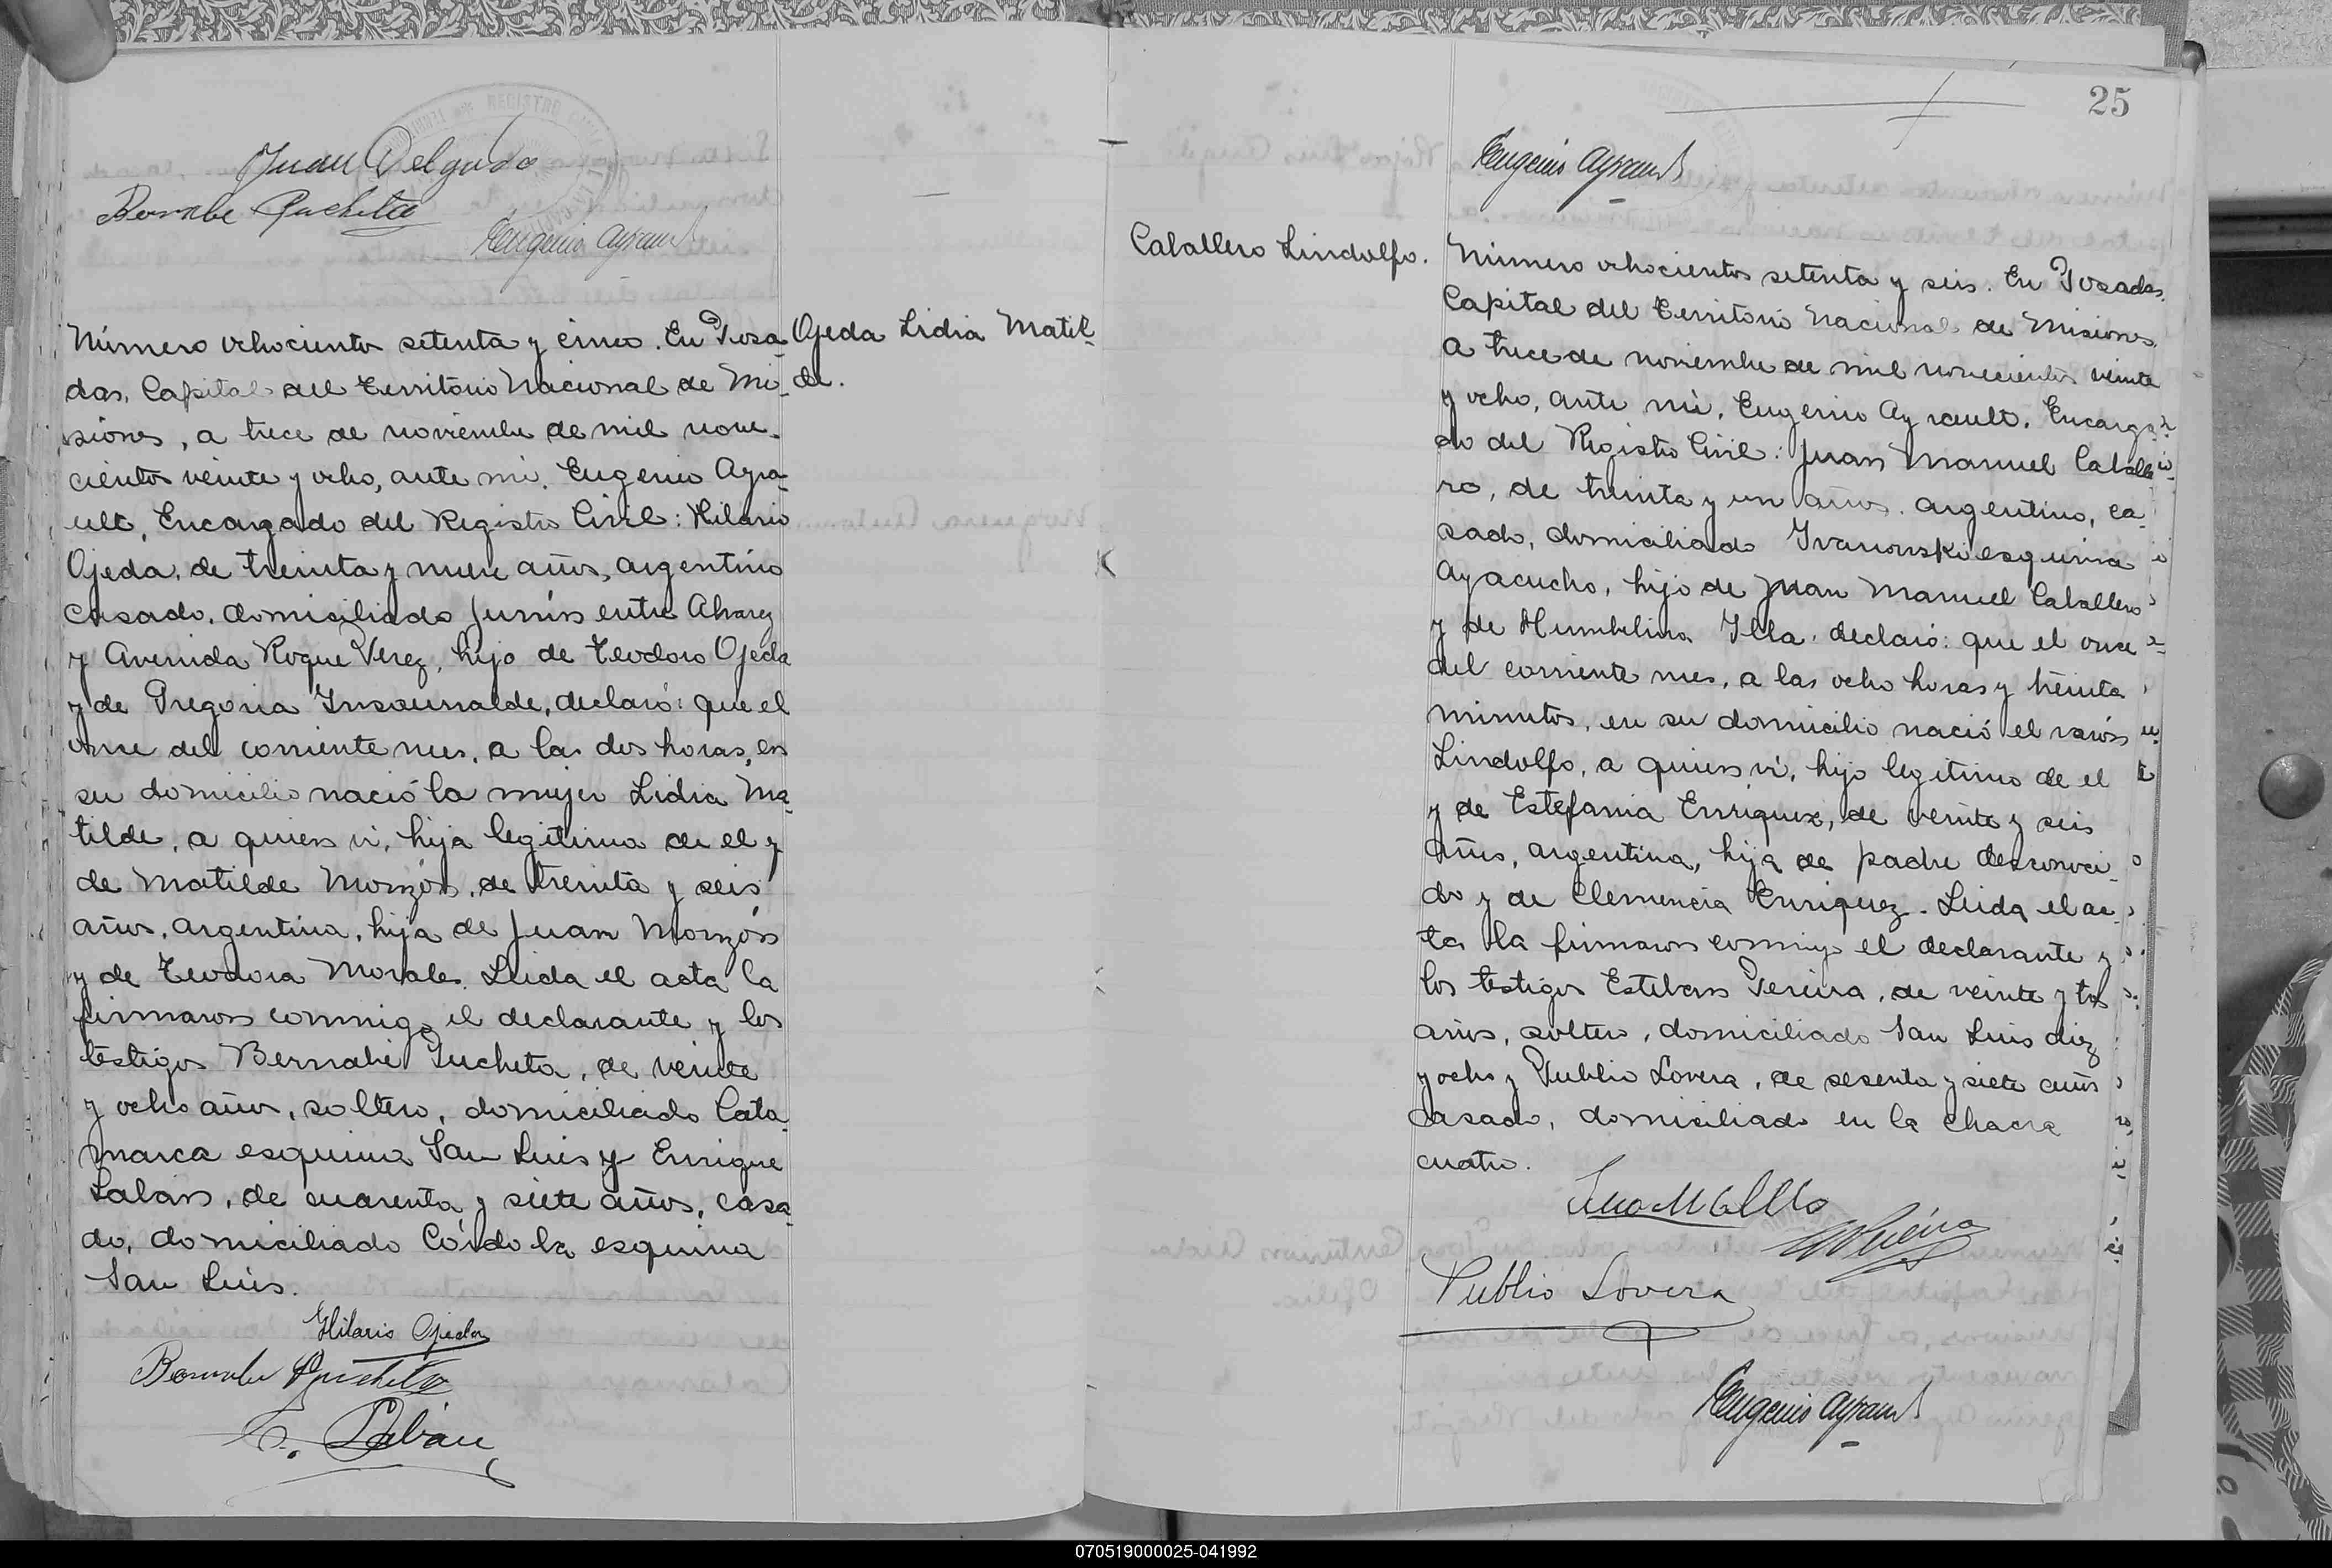 REGISTRO
Juan Delgado
Bernabe Pucheta
Eugenio Ayrault
Ojeda Lidia Matil-
de.
Número ochocientos setenta y cinco. En Posa-
das, Capital del Territorio Nacional de Mi-
siones, a trece de noviembre de mil nove-
cientos veinte y ocho, ante mi, Eugenio Ayra-
ult, Encargado del Registro Civil: Hilario
Ojeda, de treinta y nueve años, argentino
casado, domiciliado Junín entre Alvarez
y Avenida Roque Perez, hijo de Teodoro Ojeda
y de Gregoria Insaurralde, declaró: que el
once del corriente mes, a las dos horas, en
su domicilio nació la mujer Lidia Ma-
tilde, a quien vi, hija legitima de el y
de Matilde Monzón, de treinta y seis
años, argentina, hija de Juan Monzón
y de Teodora Morales. Leida el acta la
firmaron conmigo el declarante y los
testigos Bernabé Pucheta, de veinte
y ocho años, soltero, domiciliado Cata-
marca esquina San Luis y Enrique
Labán, de cuarenta y siete años, casa-
do, domiciliado Córdoba esquina
San Luis.
Hilario Ojeda
Bernabe Pucheta
E. Labán
25
Eugenio Ayrault
Caballero Lindolfo.
Número ochocientos setenta y seis. En Posadas,
Capital del Territorio Nacional de Misiones,
a trece de noviembre de mil novecientos veinte
y ocho, ante mi, Eugenio Ayrault, Encarga-
do del Registro Civil: Juan Manuel Caballe-
ro, de treinta y un años, argentino, ca-
sado, domiciliado Ivanouski esquina
Ayacucho, hijo de Juan Manuel Caballero
y de Humbelina Illa, declaró: que el once
del corriente mes, a las ocho horas y treinta
minutos, en su domicilio nació el varón
Lindolfo, a quien vi, hijo legitimo de el
y de Estefania Enriquez, de veinte y seis
años, argentina, hija de padre desconoci-
do y de Clemencia Enriquez. Leida el ac-
ta la firmaron conmigo el declarante y
los testigos Esteban Pereira, de veinte y tres
años, soltero, domiciliado San Luis diez
y ocho y Publio Lovera, de sesenta y siete años
casado, domiciliado en la chacra
cuatro.
Publio Lovera
Eugenio Ayrault
070519000025-041992